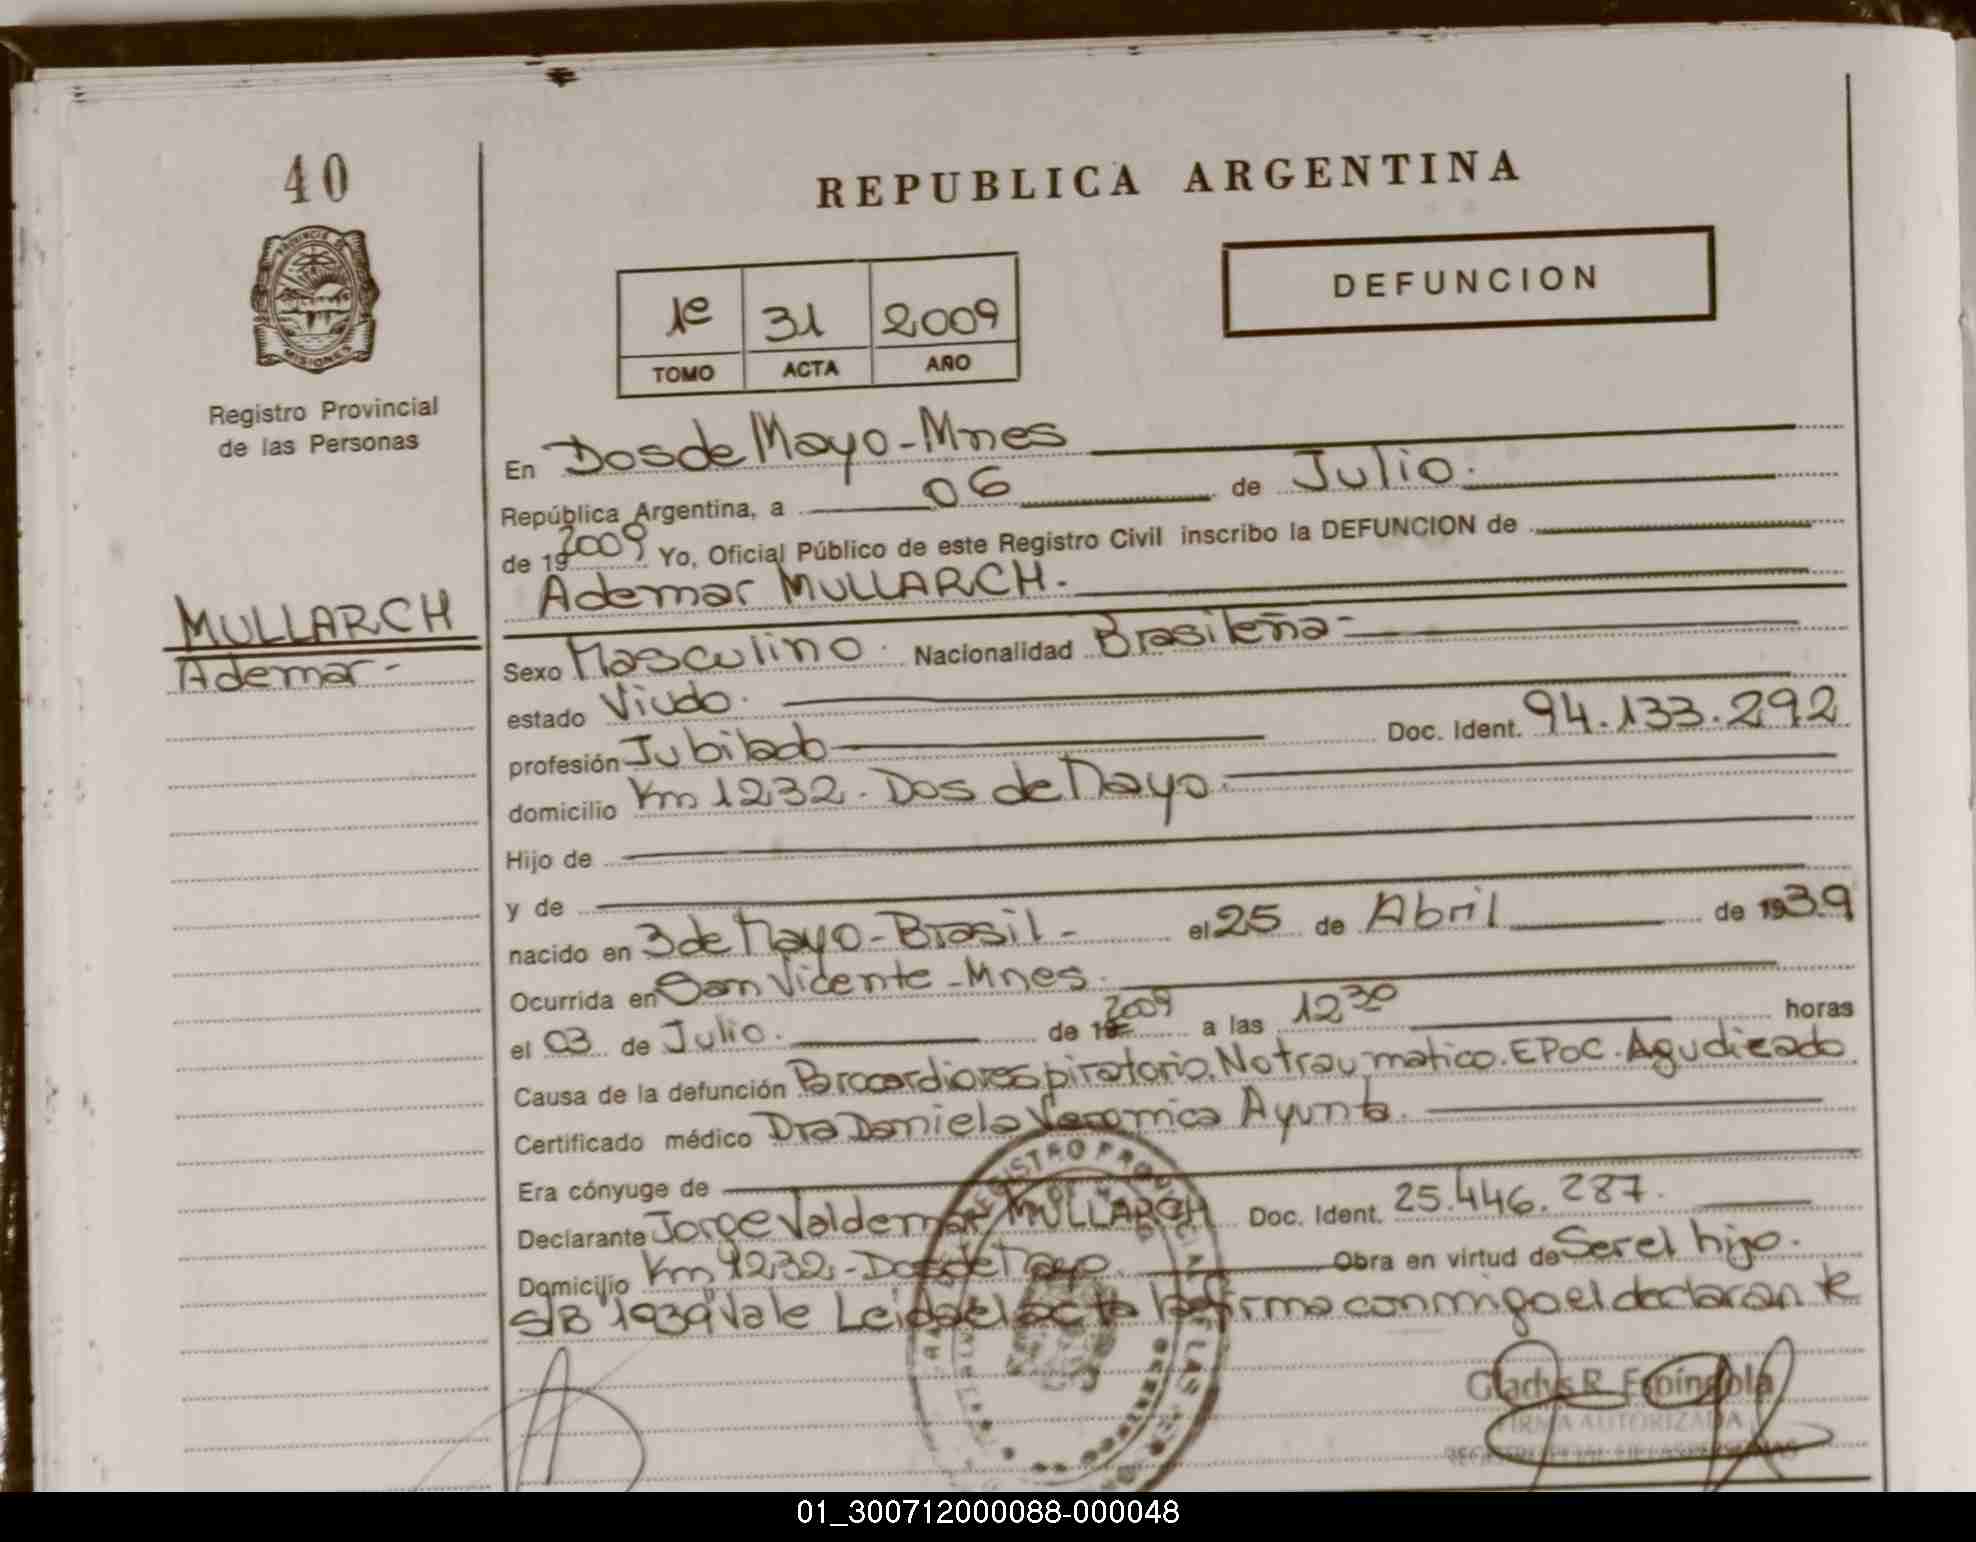 40
REPUBLICA ARGENTINA
PROVINCIA DE
MISIONES
DEFUNCION
1e 31 2009
TOMO ACTA AÑO
Registro Provincial
de las Personas
En Dos de Mayo - Mnes
República Argentina, a 06 de Julio.
de 19 2009 Yo, Oficial Público de este Registro Civil inscribo la DEFUNCION de
Ademar MULLARCH.
MULLARCH
Ademar -
Sexo Masculino. Nacionalidad Brasileña -
estado Viudo.
profesión Jubilado Doc. Ident. 94.133.292
domicilio Km 1232 - Dos de Mayo.
Hijo de
y de
nacido en 3 de Mayo - Brasil - el 25 de Abril de 1939
Ocurrida en San Vicente - Mnes.
el 03 de Julio. de 19 2009 a las 12 30 horas
Causa de la defunción Parocardiorespiratorio. No traumatico. EPOC. Agudizado
Certificado médico Dra Daniela Veronica Ayunta.
Era cónyuge de
Declarante Jorge Valdemar MULLARCH Doc. Ident. 25.446.287.
Domicilio Km 1232 - Dos de Mayo. Obra en virtud de Ser el hijo.
S/B "1939" Vale Leida el acta la firma conmigo el declarante
Gladys R. Espíndola
FIRMA AUTORIZADA
01_300712000088-000048